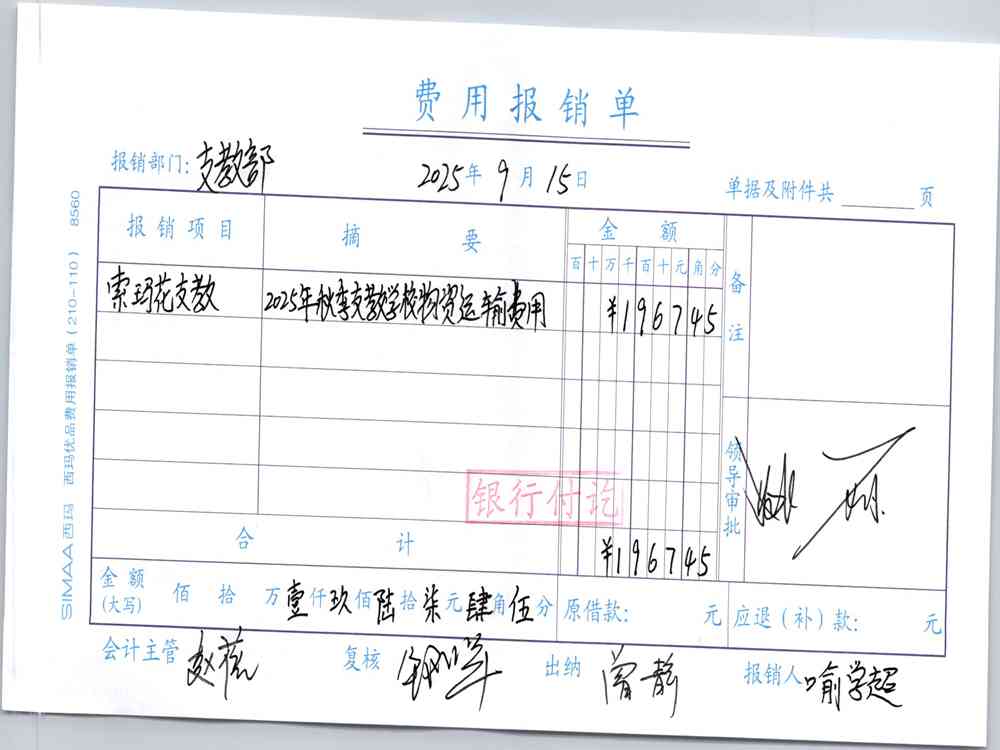 费用报销单
报销部门:支教部 2025年9月15日 单据及附件共 页
报销项目 摘要 金额 备注
百十万千百十元角分
索玛花支教 2025年秋季支教学校物资运输费用 ¥196745
银行付讫
领导审批
合计 ¥196745
金额(大写) 佰 拾 万壹仟玖佰陆拾柒元肆角伍分 原借款: 元 应退(补)款: 元
会计主管 复核 出纳 曾静 报销人 喻学超
SIMAA西玛 西玛优品费用报销单(210-110) 8560